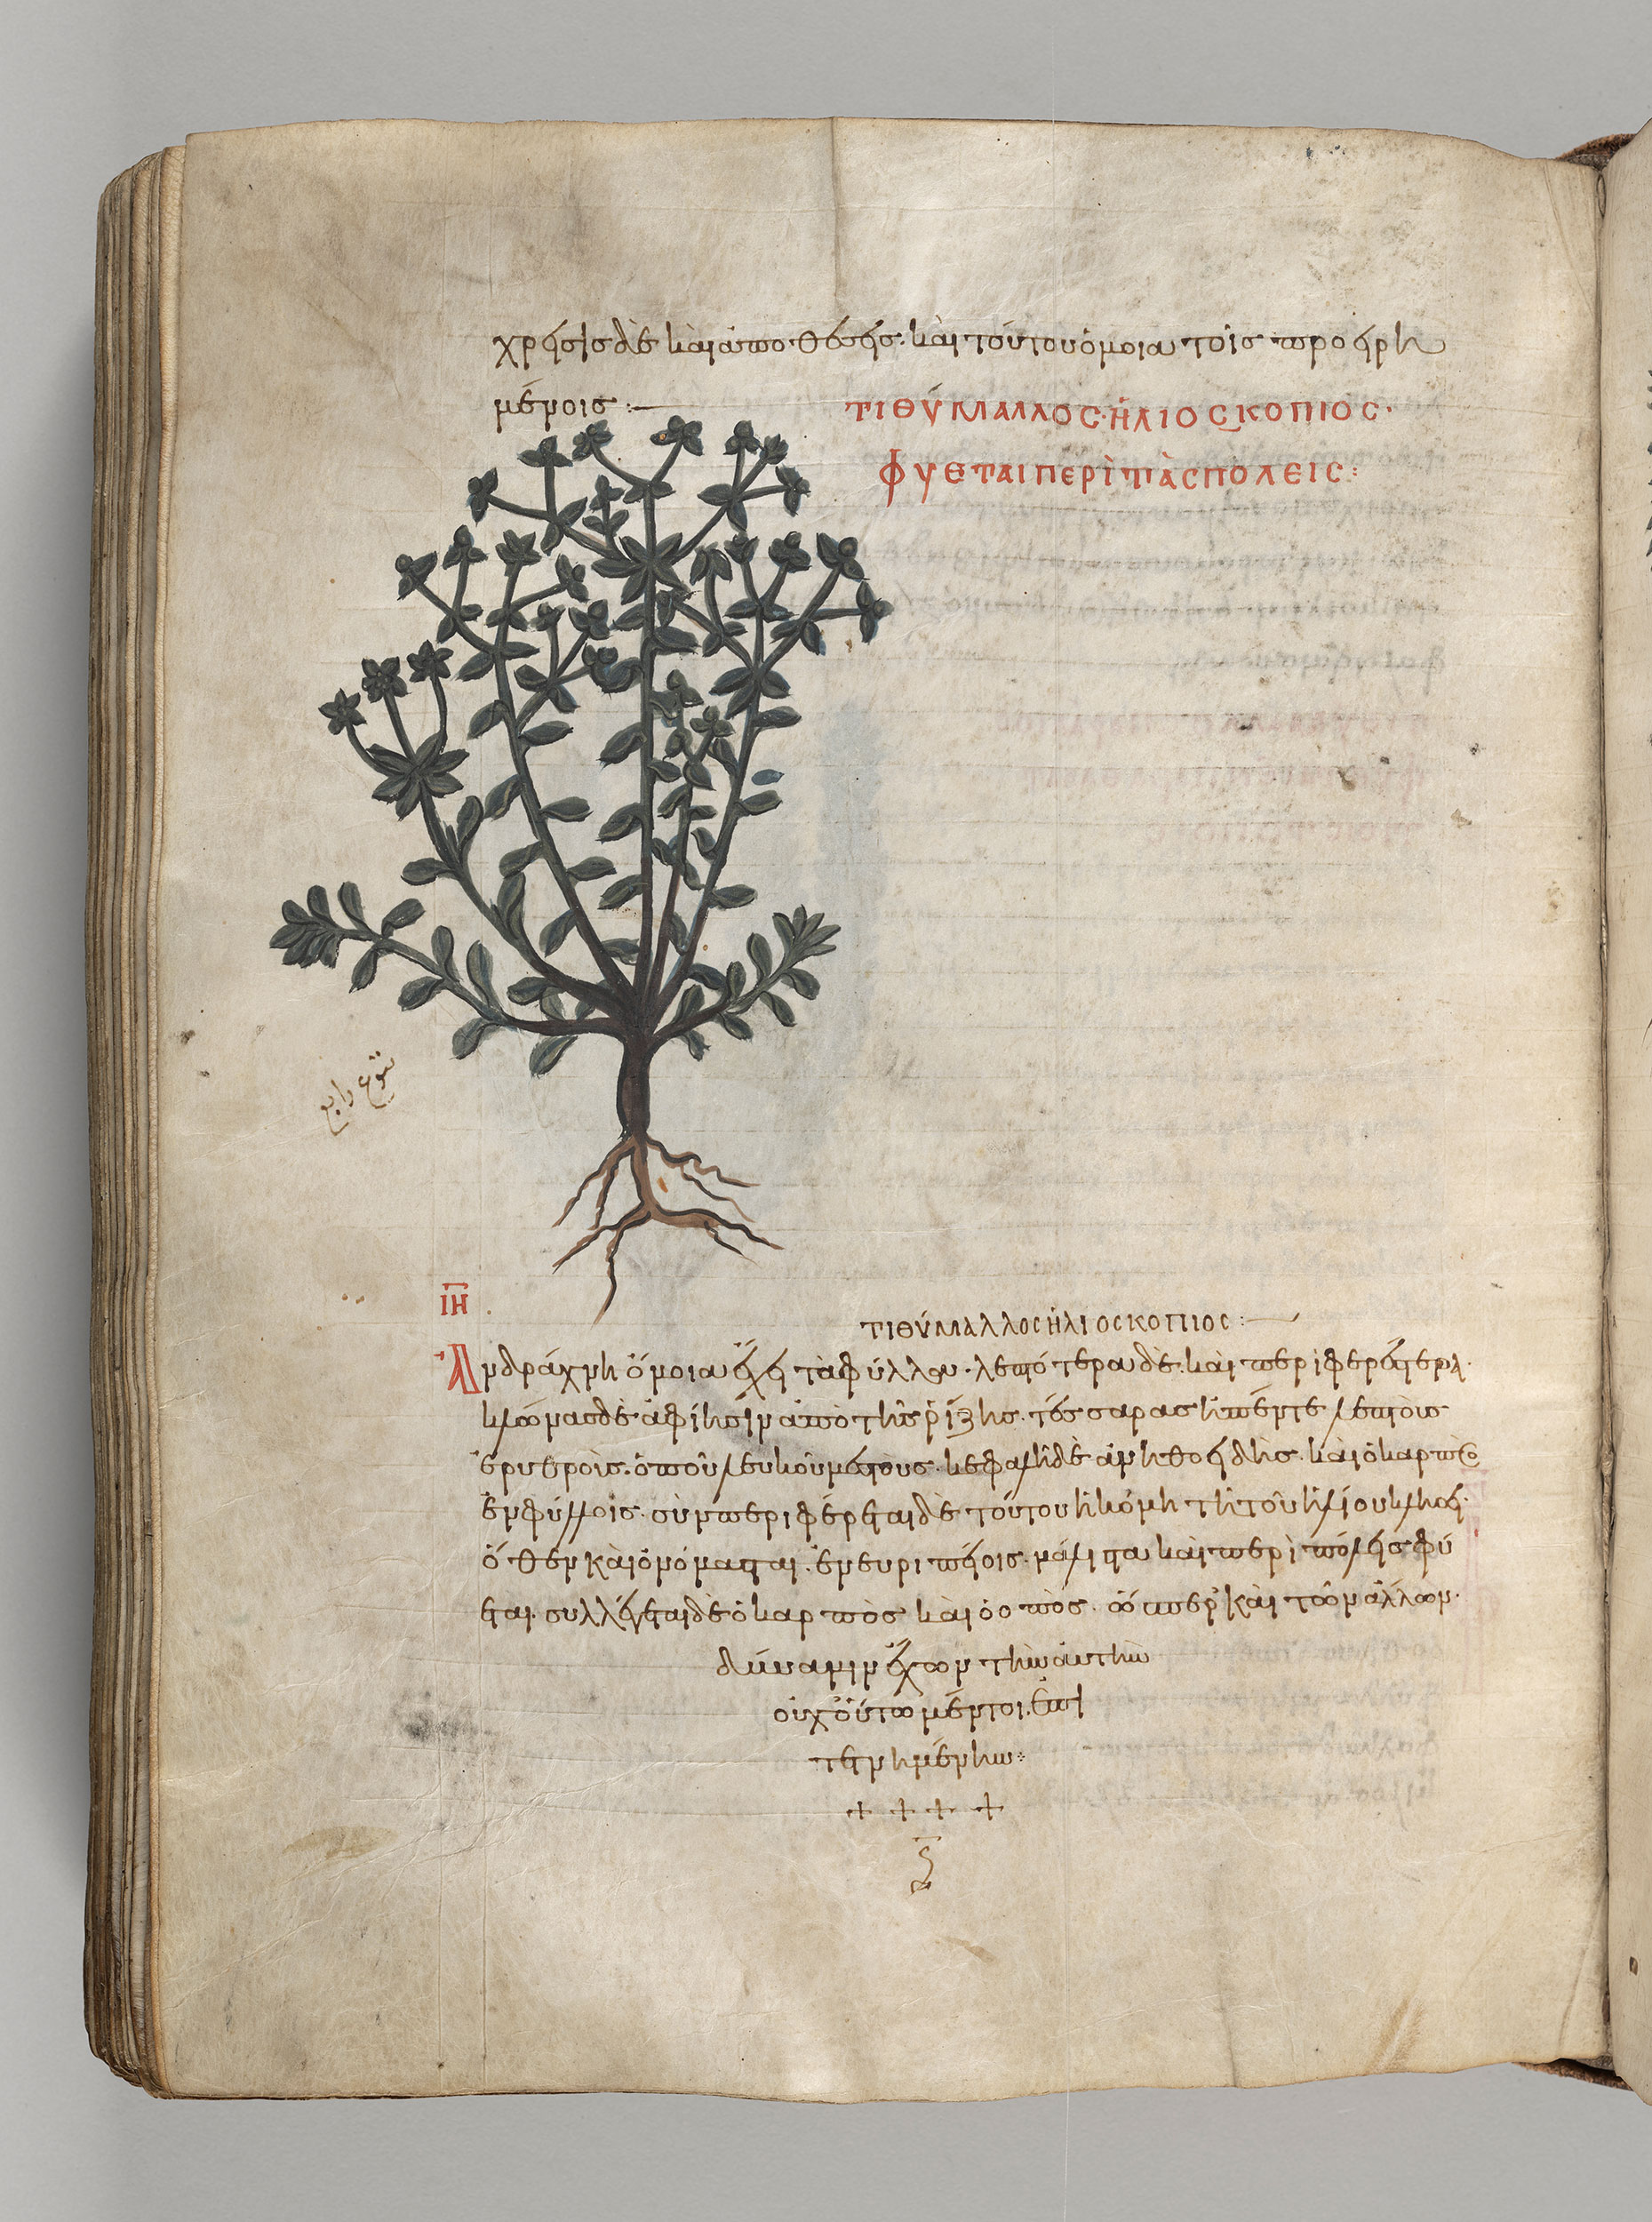 χρήσις δὲ καὶ ἀποθέσεις. καὶ τούτου ὅμοια τοῖς προειρη
μένοις :—
ΤΙΘΎΜΑΛΛΟC· ἩΛΙΟCΚΟΠΙΟC·
ΦΥΕΤΑΙ ΠΕΡῚ ΤᾺC ΠΟΛΕΙC :
يتوع رابع
ΙΗ
ΤΙΘΎΜΑΛΛΟC ἩΛΙΟCΚΟΠΙΟC :—
Ἀνδράχνη ὅμοια ἔχει τὰ φύλλα· λεπτότερα δὲ. καὶ περιφερέστερα·
κλῶνας δὲ ἀφίησιν ἀπὸ τῆς ῥίζης. τέσσαρας ἢ πέντε λεπτοὺς
ἐρυθρούς. ὀποῦ λευκοῦ μεστούς. κεφαλὴ δὲ ἀνηθοειδὴς. καὶ ὁ καρπὸς
ἐν φύλλοις. συμπεριφέρεται δὲ τούτου ἡ κόμη τῇ τοῦ ἡλίου κλήσει·
ὅθεν καὶ ὀνόμασται. ἐν ἐυριπείοις. μάλιστα καὶ περὶ πόλεις φύ
εται. συλλέγεται δὲ ὁ καρπὸς καὶ ὁ ὀπὸς. ὥσπερ καὶ τῶν ἄλλων·
δύναμιν ἔχων τὴν ἀυτὴν
οὐχ οὕτω μέντοι. ἐπι
τεταμένην :
+ + + +